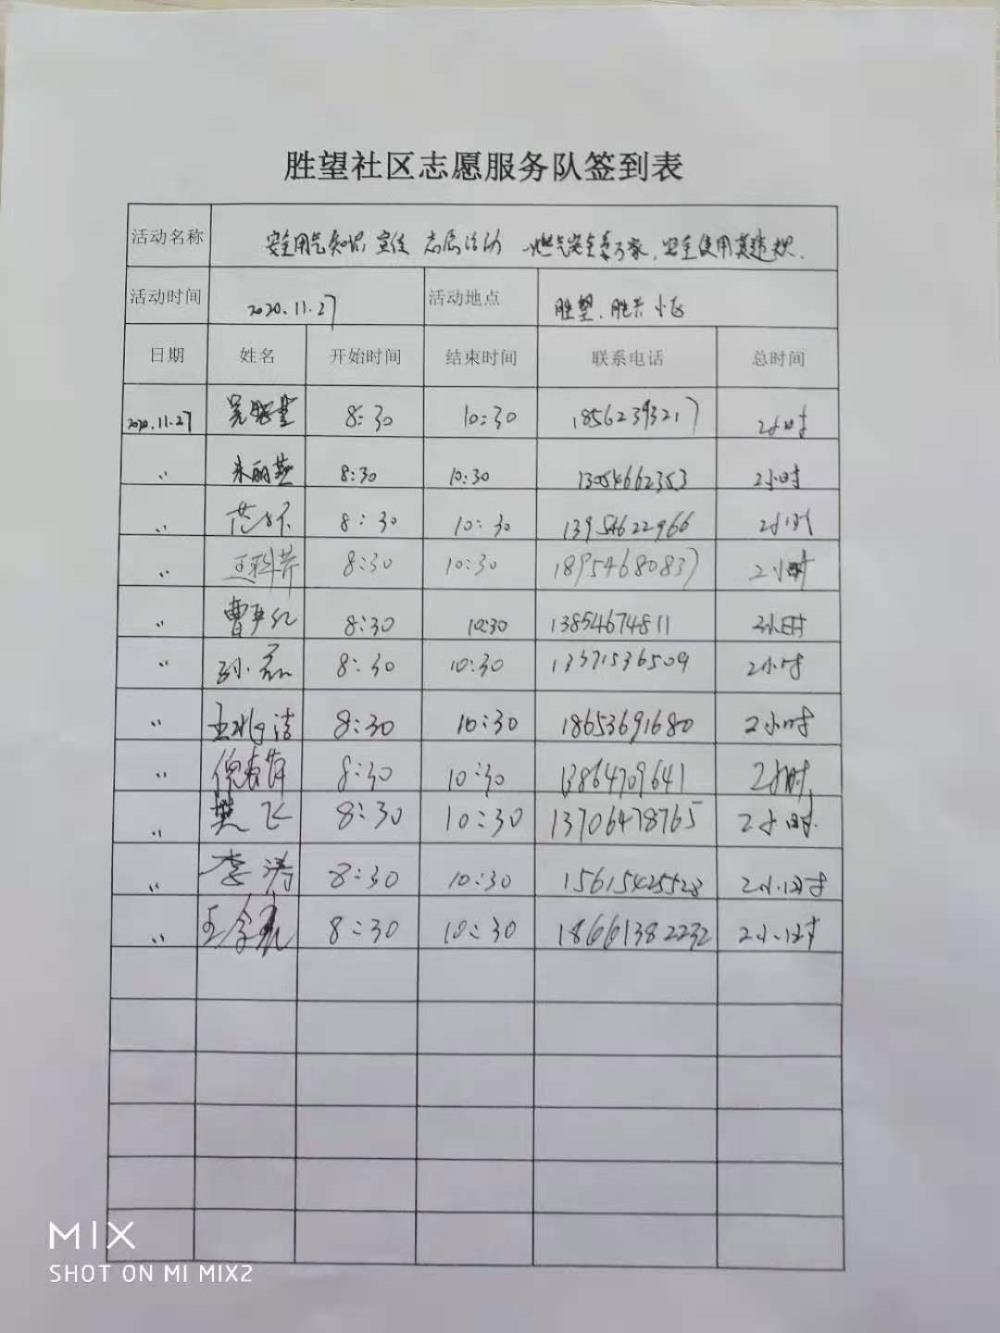 胜望社区志愿服务队签到表
活动名称 安全用气知识宣传志愿活动 燃气安全系万家,安全使用莫违规.
活动时间 2020.11.27 活动地点 胜望、胜兴小区
日期 姓名 开始时间 结束时间 联系电话 总时间
2020.11.27 8:30 10:30 18562393217 2小时
〃 朱丽燕 8:30 10:30 13054662353 2小时
〃 8:30 10:30 13954622966 2小时
〃 8:30 10:30 18954680837 2小时
〃 曹平红 8:30 10:30 13854674811 2小时
〃 孙磊 8:30 10:30 13371536509 2小时
〃 8:30 10:30 18653691680 2小时
〃 8:30 10:30 13864709641 2小时
〃 樊飞 8:30 10:30 13706478765 2小时
〃 李涛 8:30 10:30 15615425528 2小时
〃 8:30 10:30 18661382232 2小时
MIX
SHOT ON MI MIX2